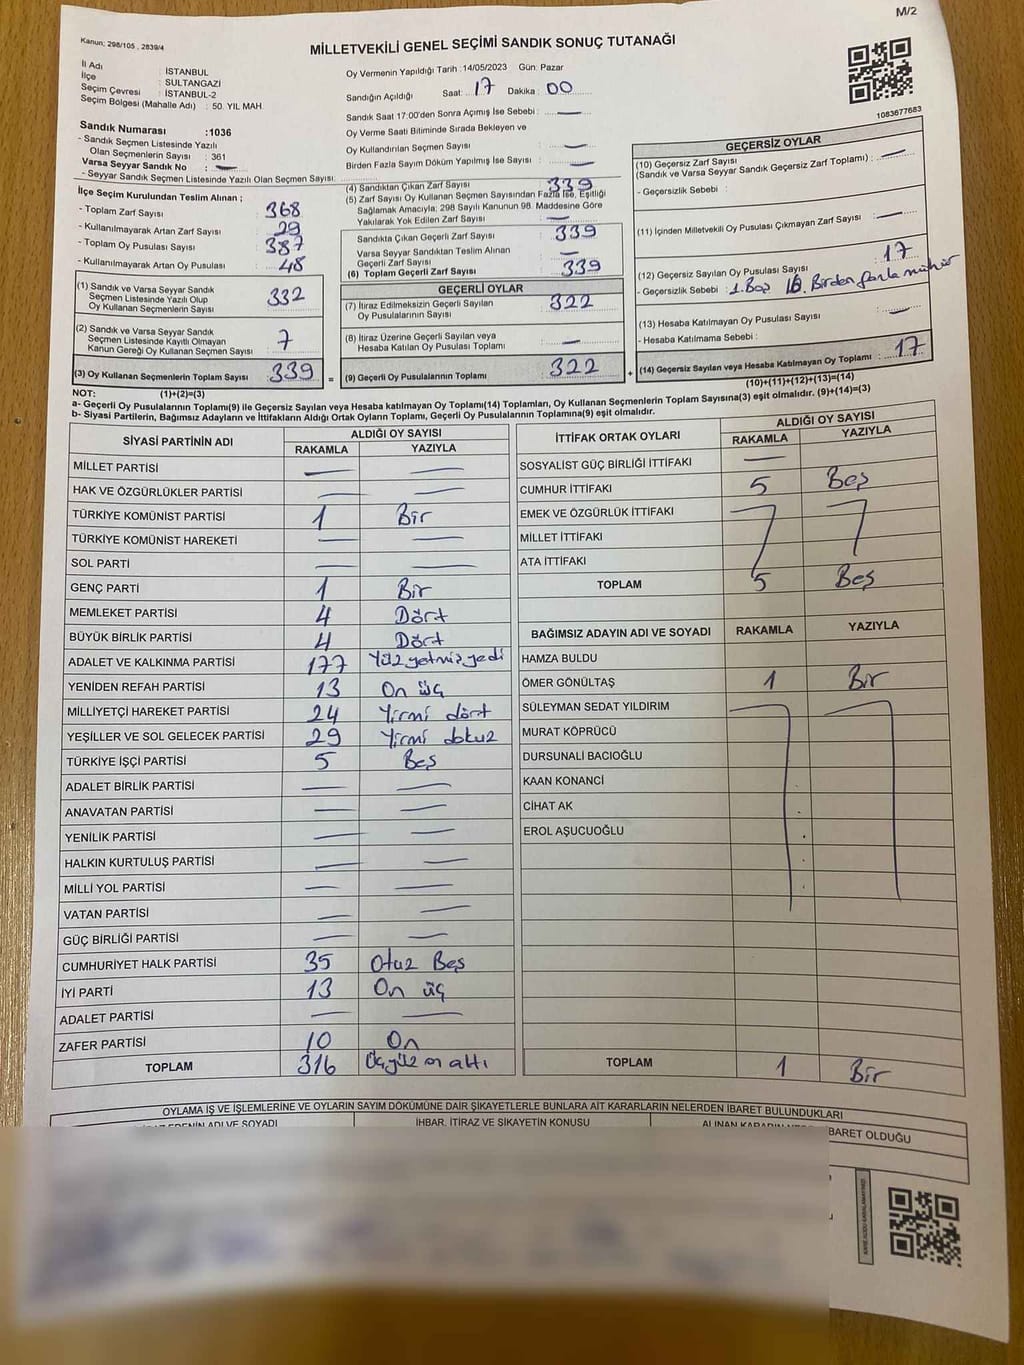 M/2
Kanun: 298/105 , 2839/4
MİLLETVEKİLİ GENEL SEÇİMİ SANDIK SONUÇ TUTANAĞI
İl Adı : İSTANBUL
İlçe : SULTANGAZİ
Seçim Çevresi : İSTANBUL-2
Seçim Bölgesi (Mahalle Adı) : 50. YIL MAH.
Oy Vermenin Yapıldığı Tarih :14/05/2023 Gün: Pazar
Sandığın Açıldığı Saat: 17 Dakika 00
Sandık Saat 17:00'den Sonra Açımış İse Sebebi : —
1083677683
Sandık Numarası :1036
- Sandık Seçmen Listesinde Yazılı
Olan Seçmenlerin Sayısı : 361
Varsa Seyyar Sandık No : —
- Seyyar Sandık Seçmen Listesinde Yazılı Olan Seçmen Sayısı:
Oy Verme Saati Bitiminde Sırada Bekleyen ve
Oy Kullandırılan Seçmen Sayısı : —
Birden Fazla Sayım Döküm Yapılmış İse Sayısı : —
İlçe Seçim Kurulundan Teslim Alınan ;
- Toplam Zarf Sayısı : 368
- Kullanılmayarak Artan Zarf Sayısı : 29
- Toplam Oy Pusulası Sayısı : 387
- Kullanılmayarak Artan Oy Pusulası : 48
(1) Sandık ve Varsa Seyyar Sandık
Seçmen Listesinde Yazılı Olup
Oy Kullanan Seçmenlerin Sayısı : 332
(2) Sandık ve Varsa Seyyar Sandık
Seçmen Listesinde Kayıtlı Olmayan
Kanun Gereği Oy Kullanan Seçmen Sayısı : 7
(3) Oy Kullanan Seçmenlerin Toplam Sayısı : 339
(1)+(2)=(3)
(4) Sandıktan Çıkan Zarf Sayısı : 339
(5) Zarf Sayısı Oy Kullanan Seçmen Sayısından Fazla İse, Eşitliği
Sağlamak Amacıyla; 298 Sayılı Kanunun 98. Maddesine Göre
Yakılarak Yok Edilen Zarf Sayısı : —
Sandıkta Çıkan Geçerli Zarf Sayısı : 339
Varsa Seyyar Sandıktan Teslim Alınan
Geçerli Zarf Sayısı : —
(6) Toplam Geçerli Zarf Sayısı : 339
GEÇERLİ OYLAR
(7) İtiraz Edilmeksizin Geçerli Sayılan
Oy Pusulalarının Sayısı : 322
(8) İtiraz Üzerine Geçerli Sayılan veya
Hesaba Katılan Oy Pusulası Toplamı : —
= (9) Geçerli Oy Pusulalarının Toplamı : 322 +
GEÇERSİZ OYLAR
(10) Geçersiz Zarf Sayısı
(Sandık ve Varsa Seyyar Sandık Geçersiz Zarf Toplamı) : —
- Geçersizlik Sebebi :
(11) İçinden Milletvekili Oy Pusulası Çıkmayan Zarf Sayısı : —
(12) Geçersiz Sayılan Oy Pusulası Sayısı : 17
- Geçersizlik Sebebi : 1. Boş 16. Birden fazla mühür
(13) Hesaba Katılmayan Oy Pusulası Sayısı : —
- Hesaba Katılmama Sebebi :
(14) Geçersiz Sayılan veya Hesaba Katılmayan Oy Toplamı : 17
(10)+(11)+(12)+(13)=(14)
NOT:
a- Geçerli Oy Pusulalarının Toplamı(9) ile Geçersiz Sayılan veya Hesaba katılmayan Oy Toplamı(14) Toplamları, Oy Kullanan Seçmenlerin Toplam Sayısına(3) eşit olmalıdır. (9)+(14)=(3)
b- Siyasi Partilerin, Bağımsız Adayların ve İttifakların Aldığı Ortak Oyların Toplamı, Geçerli Oy Pusulalarının Toplamına(9) eşit olmalıdır.
SİYASİ PARTİNİN ADI ALDIĞI OY SAYISI
RAKAMLA YAZIYLA
MİLLET PARTİSİ — —
HAK VE ÖZGÜRLÜKLER PARTİSİ — —
TÜRKİYE KOMÜNİST PARTİSİ 1 Bir
TÜRKİYE KOMÜNİST HAREKETİ — —
SOL PARTİ — —
GENÇ PARTİ 1 Bir
MEMLEKET PARTİSİ 4 Dört
BÜYÜK BİRLİK PARTİSİ 4 Dört
ADALET VE KALKINMA PARTİSİ 177 Yüz yetmiş yedi
YENİDEN REFAH PARTİSİ 13 On üç
MİLLİYETÇİ HAREKET PARTİSİ 24 Yirmi dört
YEŞİLLER VE SOL GELECEK PARTİSİ 29 Yirmi dokuz
TÜRKİYE İŞÇİ PARTİSİ 5 Beş
ADALET BİRLİK PARTİSİ — —
ANAVATAN PARTİSİ — —
YENİLİK PARTİSİ — —
HALKIN KURTULUŞ PARTİSİ — —
MİLLİ YOL PARTİSİ — —
VATAN PARTİSİ — —
GÜÇ BİRLİĞİ PARTİSİ — —
CUMHURİYET HALK PARTİSİ 35 Otuz Beş
İYİ PARTİ 13 On üç
ADALET PARTİSİ — —
ZAFER PARTİSİ 10 On
TOPLAM 316 Üçyüz on altı
İTTİFAK ORTAK OYLARI ALDIĞI OY SAYISI
RAKAMLA YAZIYLA
SOSYALİST GÜÇ BİRLİĞİ İTTİFAKI —
CUMHUR İTTİFAKI 5 Beş
EMEK VE ÖZGÜRLÜK İTTİFAKI
MİLLET İTTİFAKI
ATA İTTİFAKI
TOPLAM 5 Beş
BAĞIMSIZ ADAYIN ADI VE SOYADI RAKAMLA YAZIYLA
HAMZA BULDU
ÖMER GÖNÜLTAŞ 1 Bir
SÜLEYMAN SEDAT YILDIRIM
MURAT KÖPRÜCÜ
DURSUNALİ BACIOĞLU
KAAN KONANCİ
CİHAT AK
EROL AŞUCUOĞLU
TOPLAM 1 Bir
OYLAMA İŞ VE İŞLEMLERİNE VE OYLARIN SAYIM DÖKÜMÜNE DAİR ŞİKAYETLERLE BUNLARA AİT KARARLARIN NELERDEN İBARET BULUNDUKLARI
ADI VE SOYADI İHBAR, İTİRAZ VE ŞİKAYETİN KONUSU ALINAN KARARIN İBARET OLDUĞU